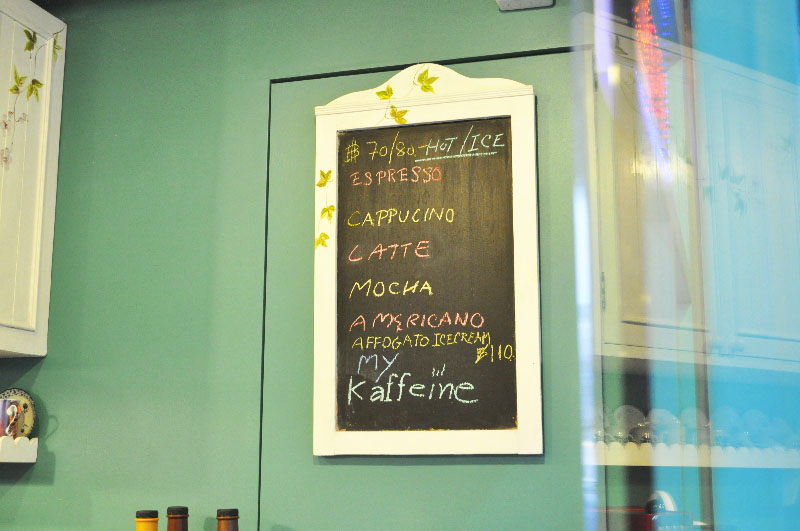 ฿ 70/80 HOT/ICE
ESPRESSO
CAPPUCINO
LATTE
MOCHA
AMERICANO
AFFOGATO ICECREAM
฿110
MY
Kaffeine